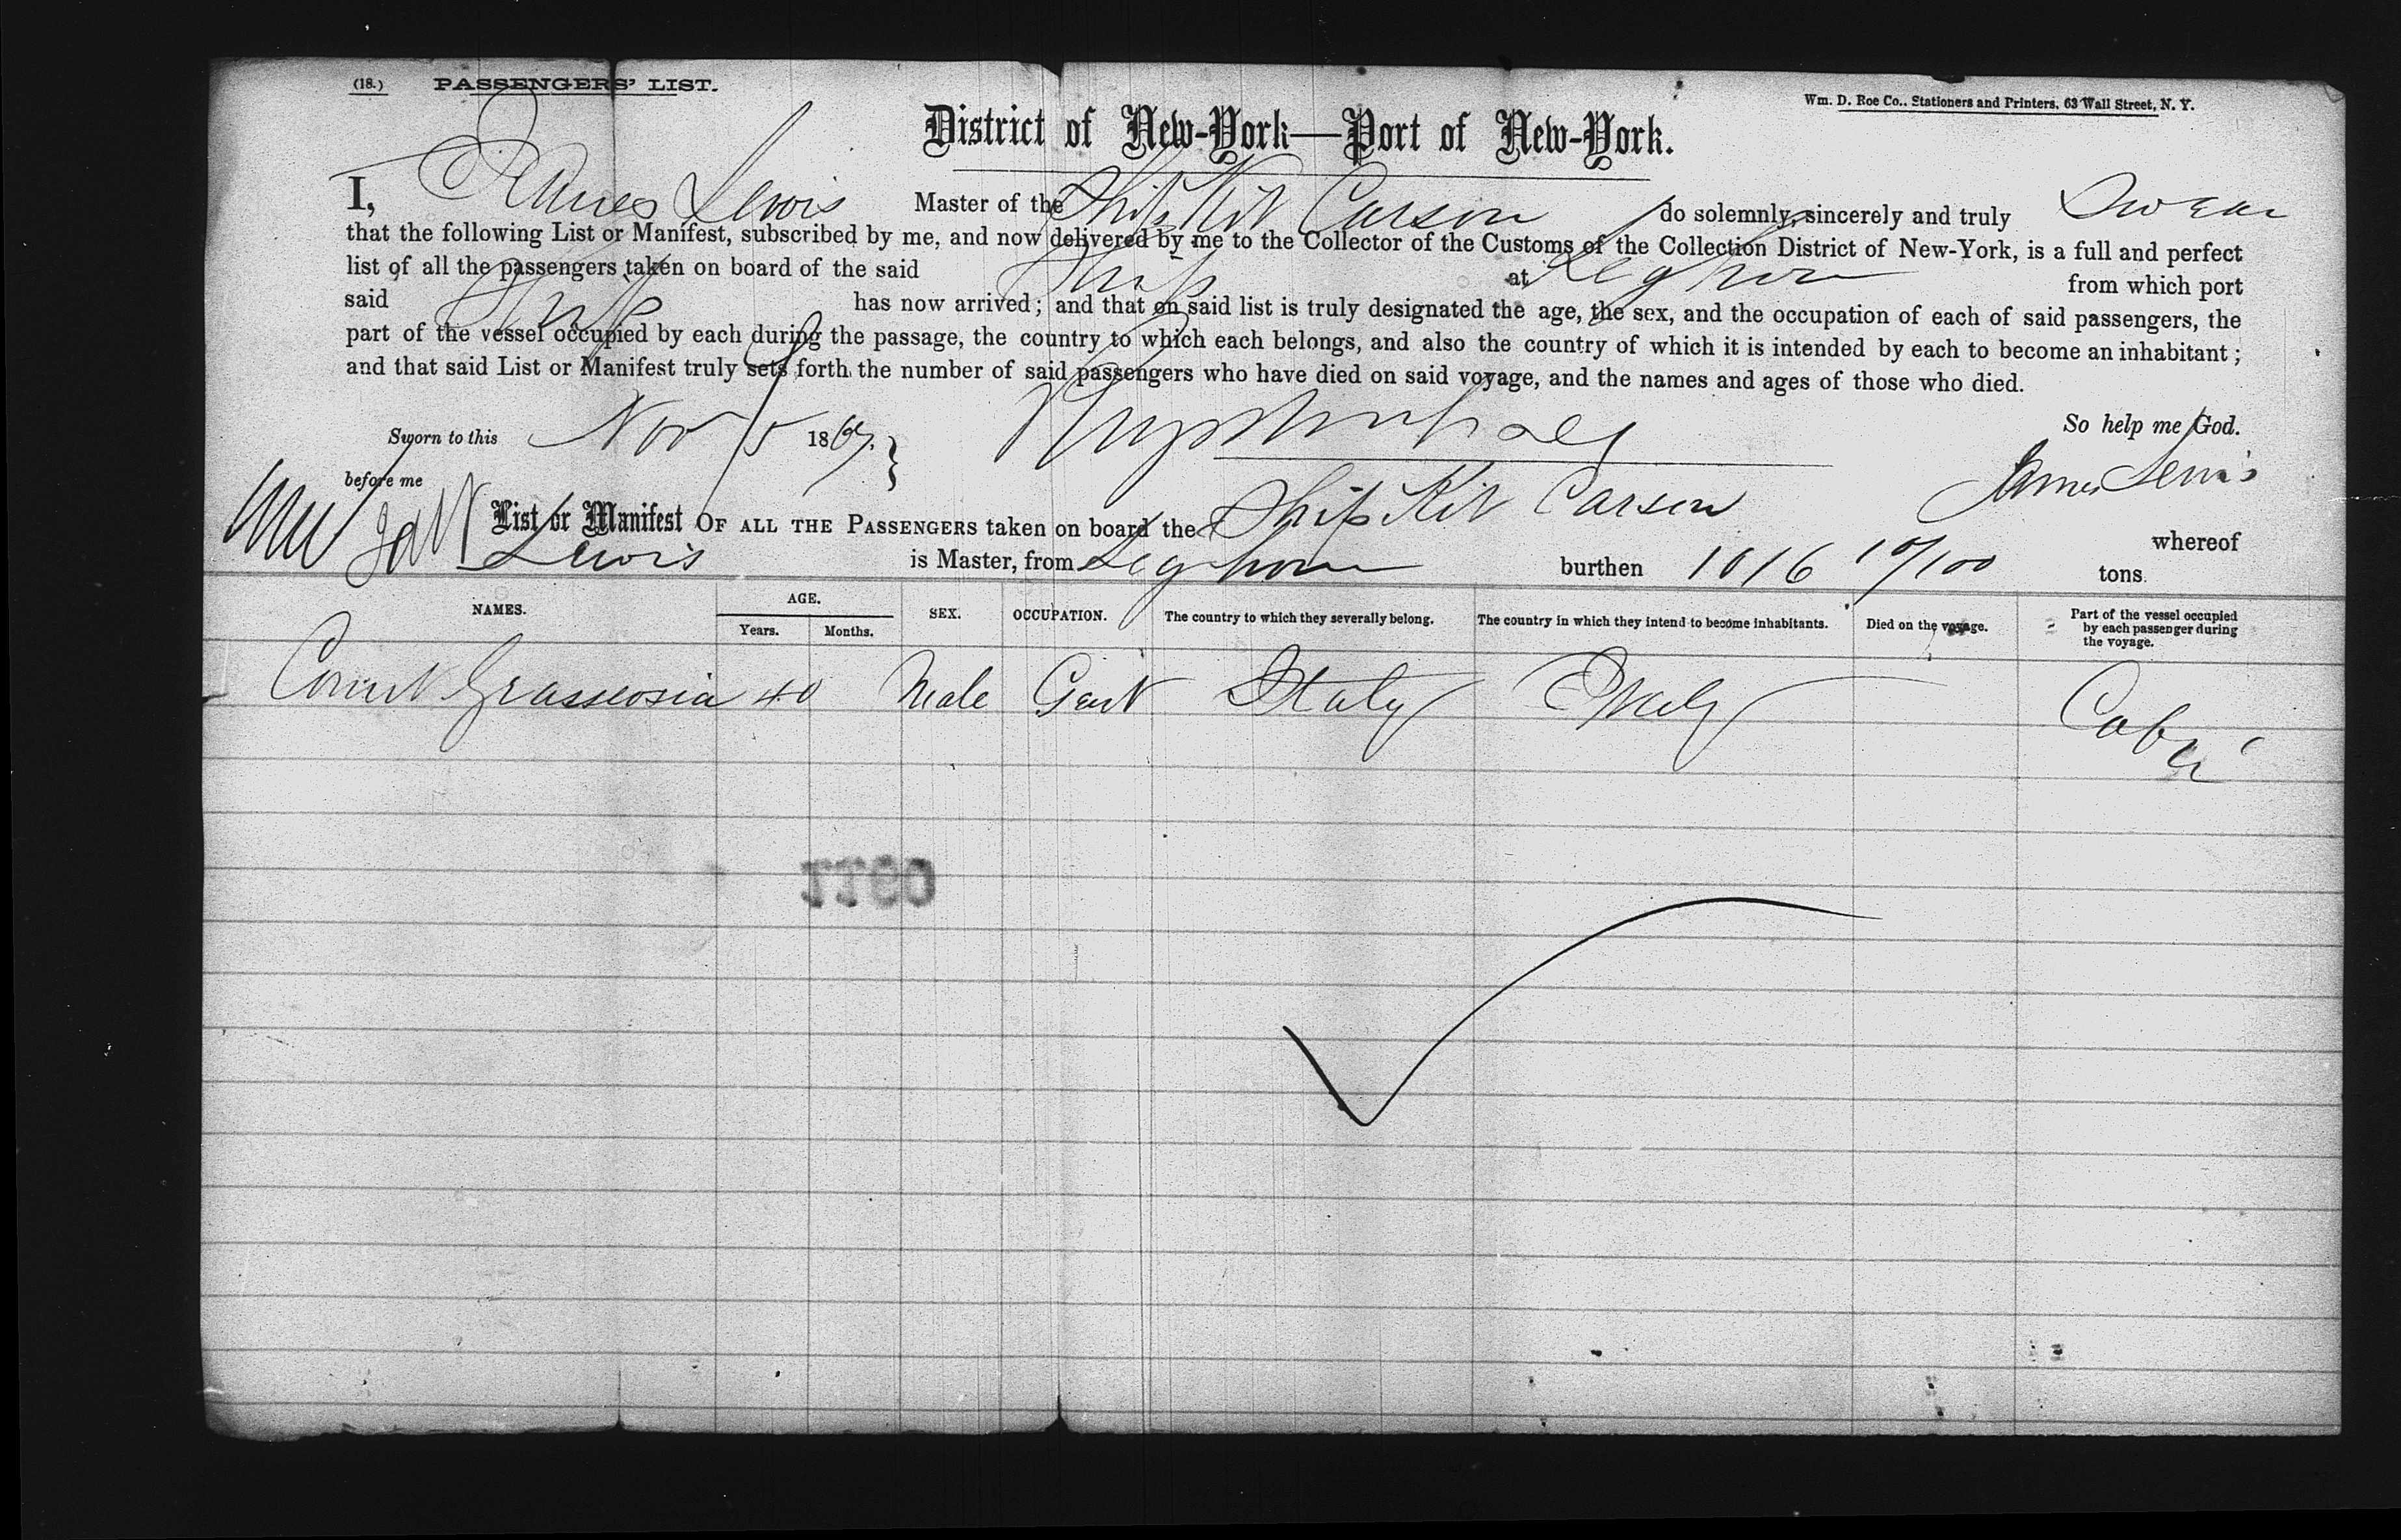 (18.) PASSENGERS' LIST.
Wm. D. Roe Co., Stationers and Printers, 63 Wall Street, N. Y.
District of New-York—Port of New-York.
I, James Lewis Master of the Ship Kit Carson do solemnly, sincerely and truly Swear
that the following List or Manifest, subscribed by me, and now delivered by me to the Collector of the Customs of the Collection District of New-York, is a full and perfect
list of all the passengers taken on board of the said Ship at Leghorn from which port
said Ship has now arrived; and that on said list is truly designated the age, the sex, and the occupation of each of said passengers, the
part of the vessel occupied by each during the passage, the country to which each belongs, and also the country of which it is intended by each to become an inhabitant;
and that said List or Manifest truly sets forth the number of said passengers who have died on said voyage, and the names and ages of those who died.
Sworn to this Nov 5 1867. So help me God.
before me James Lewis
List or Manifest OF ALL THE PASSENGERS taken on board the Ship Kit Carson whereof
Lewis is Master, from Leghorn burthen 1016 10/100 tons.
NAMES. AGE. Years. Months. SEX. OCCUPATION. The country to which they severally belong. The country in which they intend to become inhabitants. Died on the voyage. Part of the vessel occupied by each passenger during the voyage.
Count 40 Male Gent Italy Italy Cabin